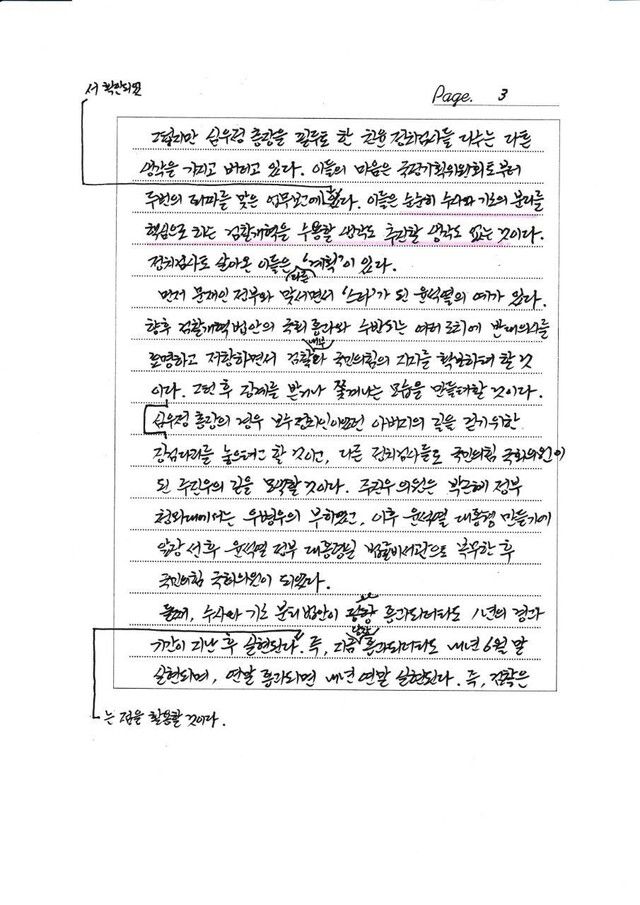 서 확인되었
Page. 3
그렇지만 심우정 총장을 필두로 한 친윤 정치검사들 다수는 다른
생각을 가지고 버티고 있다. 이들의 마음은 국정기획위원회로부터
두번의 퇴짜를 맞은 업무보고에 있다. 이들은 순순히 수사와 기소의 분리를
핵심으로 하는 검찰개혁을 수용할 생각도 추진할 생각도 없는 것이다.
정치검사로 살아온 이들은 '계획'이 있다.
다른
먼저 문재인 정부와 맞서면서 '스타'가 된 윤석열의 예가 있다.
향후 검찰개혁법안의 국회 통과와 수반되는 여러 조치에 반대의사를
내부
표명하고 저항하면서 검찰과 국민의힘의 지지를 확보하려 할 것
이다. 그런 후 징계를 받거나 쫓겨나는 모습을 만들려 할 것이다.
심우정 총장의 경우 보수정치인이었던 아버지의 길을 걷기 위한
징검다리를 놓으려고 할 것이고, 다른 정치검사들도 국민의힘 국회의원이
된 주진우의 길을 모색할 것이다. 주진우 의원은 박근혜 정부
청와대에서는 우병우의 부하였고, 이후 윤석열 대통령 만들기에
앞장 서 후 윤석열 정부 대통령실 법률비서관으로 복무한 후
국민의힘 국회의원이 되었다.
둘째, 수사와 기소 분리 법안이 통과되더라도 1년의 경과
기간이 지난 후 실현된다. 즉, 지금 통과되더라도 내년 6월 말
실현되며, 연말 통과되면 내년 연말 실현된다. 즉, 검찰은
는 점을 활용할 것이다.